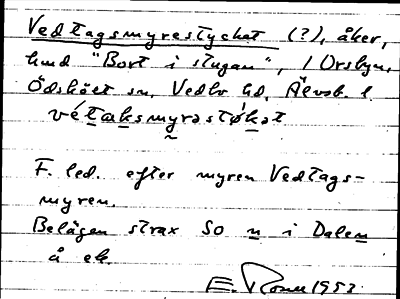 Vedtagsmyrestycket (?), åker,
hmd "Bort i stugan", 1 Orsbyn,
Ödskölt sn, Vedbo hd, Älvsb. l.
vé́taksmyrəstø̀kət
F. led. efter myren Vedtags-
myren.
Belägen strax SO n i Dalen
å ek.
E. 1953